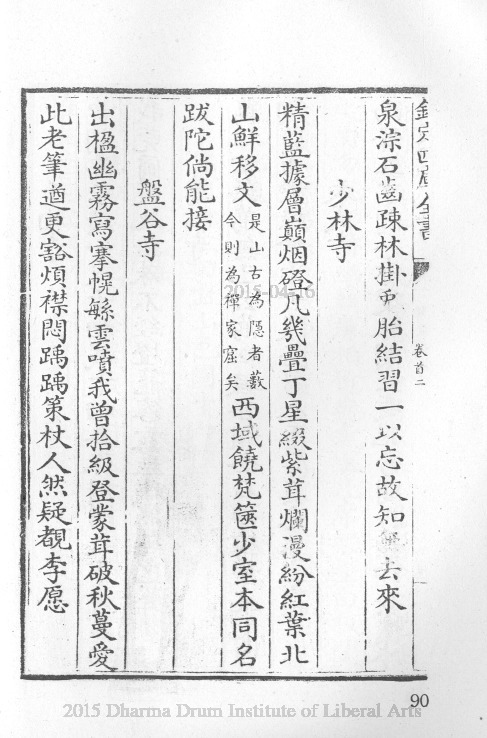 欽定四庫全書
卷首二
泉淙石齒疎林掛𠂔胎結習一以忘故知去來
少林寺
精藍據層巔烟磴凡幾疊丁星綴紫茸爛漫紛紅葉北
山鮮移文是山古為隱者藪今則為禪家窟矣西域饒梵箧少室本同名
跋陀倘能接
盤谷寺
出楹幽霧寫搴幌緜雲噴我曾拾級登蒙茸破秋蔓愛
此老筆遒更豁煩襟悶踽踽策杖人然疑覩李愿
90
2015-04-16
2015 Dharma Drum Institute of Liberal Arts